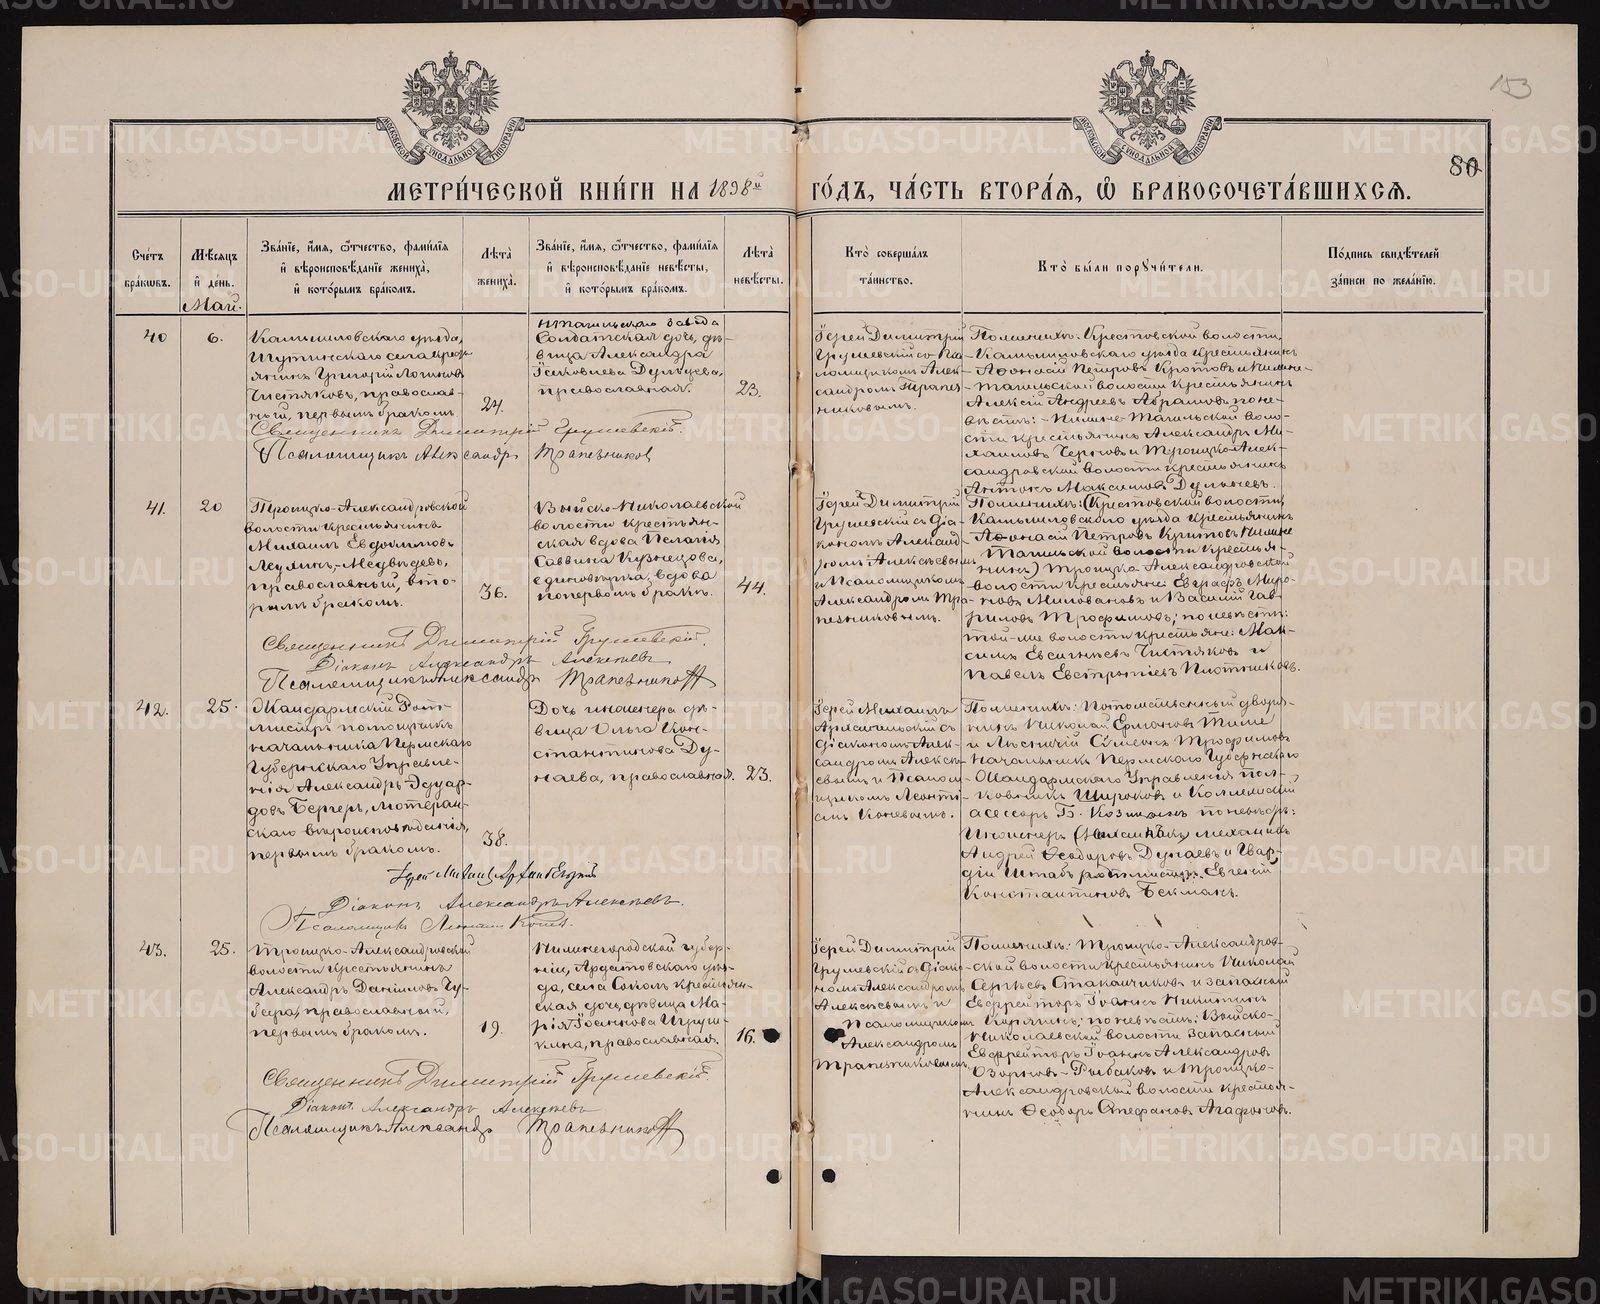 153
80
МОСКОВСКОЙ СѴНОДАЛЬНОЙ ТИПОГРАФІИ
МОСКОВСКОЙ СѴНОДАЛЬНОЙ ТИПОГРАФІИ
МЕТРИ́ЧЕСКОЙ КНИ́ГИ НА 1898й ГО́ДЪ, ЧА́СТЬ ВТОРА́Я, Ѽ БРАКОСОЧЕТА́ВШИХСѦ.
Сче́тъ бра́кѡвъ.
Мѣ́сяцъ и҆ де́нь.
Зва́нїе, и҆́мя, ѻ҆́тчество, фами́лїя и҆ вѣроисповѣ́данїе жениха̀, и҆ кото́рымъ бра́комъ.
Лѣта̀ жениха̀.
Зва́нїе, и҆́мя, ѻ҆́тчество, фами́лїя и҆ вѣроисповѣ́данїе невѣ́сты, и҆ кото́рымъ бра́комъ.
Лѣта̀ невѣ́сты.
Кто̀ соверша́лъ та́инство.
Кто̀ бы́ли порꙋчи́тели.
По́дпись свидѣ́телей за́писи по жела́нїю.
Май.
40
6.
Камышловскаго уѣзда,
Шутинскаго села кресть-
янинъ Григорій Логиновъ
Чистяковъ, православ-
ный, первымъ бракомъ.
24.
Нтагильскаго завода
Солдатская дочь, дѣ-
вица Александра
Іаковлева
православная.
23.
Іерей Димитрій
Грушевскій со Пса-
ломщикомъ Алек-
сандромъ Трапез-
никовымъ.
По женихѣ: Крестовской волости,
Камышловскаго уѣзда крестьянинъ
Аѳонасій Петровъ Кротовъ и Нижне-
Тагильской волости крестьянинъ
Алексій Андреевъ Абрамовъ; по не-
вѣстѣ: Нижне-Тагильской воло-
сти крестьянинъ Александръ Ми-
хаиловъ Черновъ и Троицко-Алек-
сандровской волости крестьянинъ
Антонъ Максимовъ
Священникъ Димитрій Грушевскій.
Псаломщикъ Александръ Трапезниковъ
41.
20
Троицко-Александровской
волости крестьянинъ
Михаилъ Евдокимовъ
православный, вто-
рымъ бракомъ.
36.
Выйско-Николаевской
волости крестьян-
ская вдова Пелагія
Саввина Кузнецова,
единовѣрка, вдова
по первомъ бракѣ.
44.
Іерей Димитрій
Грушевскій съ Діа-
кономъ Александ-
ромъ Алексѣевымъ
и Псаломщикомъ
Александромъ Тра-
пезниковымъ.
По женихѣ: (Крестовской волости,
Камышловскаго уѣзда крестьянинъ
Аѳонасій Петровъ Кротовъ Нижне
Тагильской волости крестья-
нинъ) Троицко-Александровской
волости крестьяне: Евграфъ Миро-
новъ Миловановъ и Василій Гав-
риловъ Трофимовъ; по невѣстѣ:
той-же волости крестьяне: Мак-
симъ Евсигнѣевъ Чистяковъ и
Павелъ Евстратіевъ Плотниковъ.
Священникъ Димитрій Грушевскій.
Діаконъ Александръ Алексѣевъ
Псаломщикъ Александръ Трапезниковъ
42.
25.
Жандармскій Рот-
мистръ помощникъ
начальника Пермскаго
Губернскаго Управле-
нія Александръ Эдуар-
довъ Бергеръ, лютеран-
скаго вѣроисповѣданія,
первымъ бракомъ.
38.
Дочь инженера дѣ-
вица Ольга Кон-
стантинова Ду-
наева, православная.
23.
Іерей Михаилъ
Архангельскій съ
Діакономъ Алек-
сандромъ Алексѣ-
евымъ и Псалом-
щикомъ Леонті-
емъ Коневымъ.
По женихѣ: Потомственный дворя-
нинъ Николай Ермоновъ Тиме
и Лѣсничій Сѷмеонъ Трофимовъ
Начальникъ Пермскаго Губернскаго
Жандармскаго Управленія пол-
ковникъ Широковъ и Коллежскій
асессоръ Б. Козицынъ по невѣстѣ:
Инженеръ механикъ
Андрей Ѳеодоровъ Дунаевъ и Гвар-
діи Штабъ ротмистръ Евгеній
Константиновъ Бекманъ.
Іерей Михаилъ Архангельскій
Діаконъ Александръ Алексѣевъ.
Псаломщикъ Леонтій Коневъ.
43.
25.
Троицко-Александровской
волости крестьянинъ
Александръ Даніиловъ Чу-
бара, православный,
первымъ бракомъ.
19.
Нижегородской губер-
ніи, Ардатовскаго уѣз-
да, села крестьян-
ская дочь, дѣвица Ма-
рія Іоаннова Игруш-
кина, православная.
16.
Іерей Димитрій
Грушевскій съ Діако-
номъ Александромъ
Алексѣевымъ и
Псаломщикомъ
Александромъ
Трапезниковымъ.
По женихѣ: Троицко-Александров-
ской волости крестьянинъ Николай
Сергѣевъ Стаканчиковъ и запасный
Ефрейторъ Іоаннъ Никитинъ
по невѣстѣ: Выйско-
Николаевской волости Запасный
Ефрейторъ Іоаннъ Александровъ
Озорновъ-Рыбаковъ и Троицко-
Александровской волости крестья-
нинъ Ѳеодоръ Стефановъ Агафоновъ.
Священникъ Димитрій Грушевскій.
Діаконъ Александръ Алексѣевъ
Псаломщикъ Александръ Трапезниковъ
METRIKI.GASO-URAL.RU